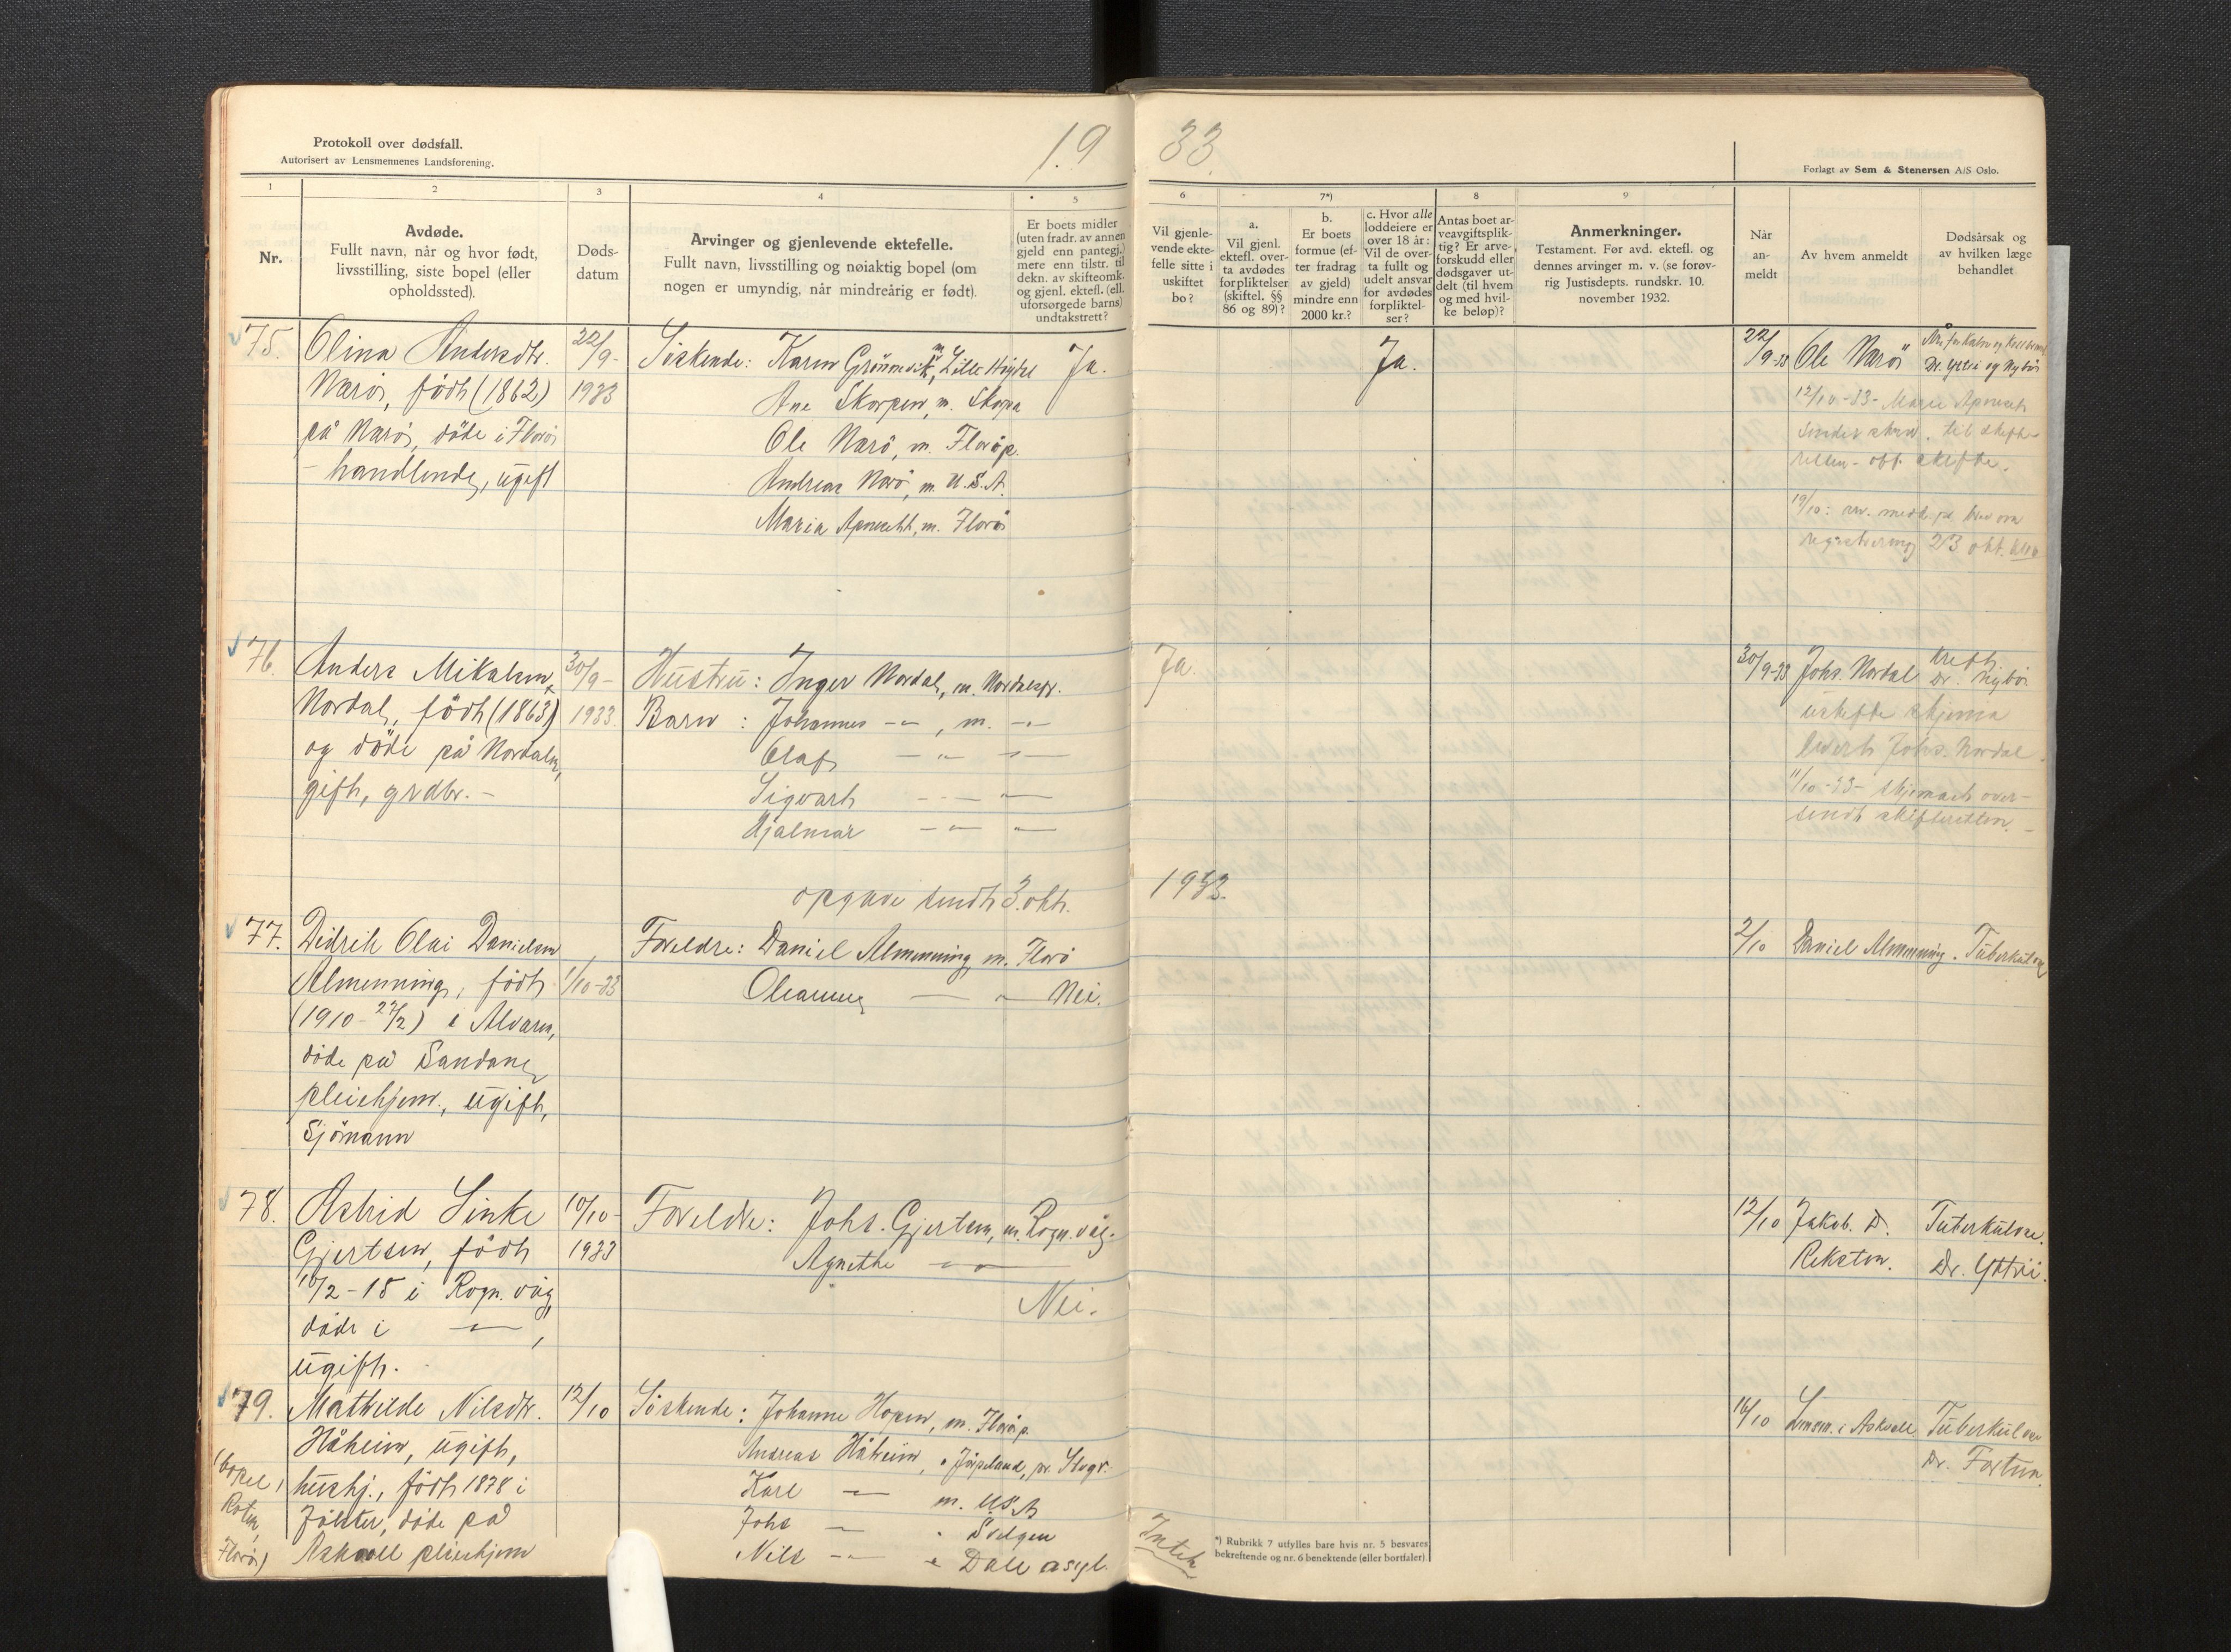 Protokoll over dødsfall.
Autorisert av Lensmennenes Landsforening.
19
1
2
3
4
5
Nr.
Avdøde.
Fullt navn, når og hvor født,
livsstilling, siste bopel (eller
opholdssted).
Døds-
datum
Arvinger og gjenlevende ektefelle.
Fullt navn, livsstilling og nøiaktig bopel (om
nogen er umyndig, når mindreårig er født).
Er boets midler
(uten fradr. av annen
gjeld enn pantegj.)
mere enn tilstr. til
dekn. av skifteomk.
og gjenl. ektefl. (ell.
uforsørgede barns)
undtakstrett?
75.
Olina Andersdtr.
Narö, födt (1862)
på Narö, döde i Florö
- handlende, ugift
22/9-
1933
Söskende: Karen Grönnevik, m. Lille Höydal
Ane Skorpen, m. Skorpa
Ole Narö, m. Florö p.
Andreas Narö, m. U.S.A.
Maria Apneseth, m. Florö
Ja.
76.
Anders Mikalsen
Nordal, födt (1863)
og döde på Nordalen,
gift, grdbr. -
30/9-
1933.
Hustru: Inger Nordal, m. Nordalsfj.
Barn: Johannes -"-, m. -"-
Olaf -"- -"-
Sigvart -"- -"-
Hjalmar -"- -"-
opgave sendt 3. okt.
77.
Didrik Olai Danielsen
Almenning, födt
(1910-27/2) i Alvaren,
döde på Sandane
pleiehjem, ugift,
Sjömann
1/10-33
Foreldre: Daniel Almenning, m. Florö
Oleanna -"- Nei.
78.
Astrid Sinke
Gjertsen, födt
10/2-18 i Rogn.våg,
döde i -"-,
ugift.
10/10-
1933
Foreldre: Johs. Gjertsen, m. Rogn.våg.
Agnethe -"-
Nei.
79.
(bopel,
Roten,
Florö)
Mathilde Nilsdtr.
Håheim, ugift,
hushj., födt 1878 i
Jölster, döde på
Askvoll pleiehjem
12/10
Söskende: Johanne Hopen, m. Florö p.
Andreas Håheim, " Jörpeland, pr. Stvgr.
Karl -"- m. USA
Johs -"- " Svelgen
Nils -"- " Dale asyl.
33.
6
7*)
8
9
Forlagt av Sem & Stenersen A/S Oslo.
Vil gjenle-
vende ekte-
felle sitte i
uskiftet
bo?
a.
Vil gjenl.
ektefl. over-
ta avdødes
forpliktelser
(skiftel. §§
86 og 89)?
b.
Er boets
formue (ef-
ter fradrag
av gjeld)
mindre enn
2000 kr.?
c. Hvor alle
loddeiere er
over 18 år:
Vil de over-
ta fullt og
udelt ansvar
for avdødes
forpliktel-
ser?
Antas boet ar-
veavgiftsplik-
tig? Er arve-
forskudd eller
dødsgaver ut-
delt (til hvem
og med hvil-
ke beløp)?
Anmerkninger.
Testament. Før avd. ektefl. og
dennes arvinger m. v. (se forøv-
rig Justisdepts. rundskr. 10.
november 1932.
Når
an-
meldt
Av hvem anmeldt
Dødsårsak og
av hvilken læge
behandlet
Ja.
22/9-33
Ole Narö
Dr. Yttri og Nybö
12/10-33- Marie Apneseth
til skifte-
retten - off. skifte.
19/10:
registrering 23 okt.
Ja.
30/9-33
Johs. Nordal
kreft
Dr. Nybö
uskifte skjema
levert Johs. Nordal.
11/10-33- skjemaet over-
sendt skifteretten. -
1933.
2/10
Daniel Almenning.
Tuberkulose
12/10
Jakob. D.
Reksten.
Tuberkulose.
Dr. Yttri.
16/10
Lensm. i Askvoll
Tuberkulose
Dr. Fortun.
Intet
*) Rubrikk 7 utfylles bare hvis nr. 5 besvares
bekreftende og nr. 6 benektende (eller bortfaler).